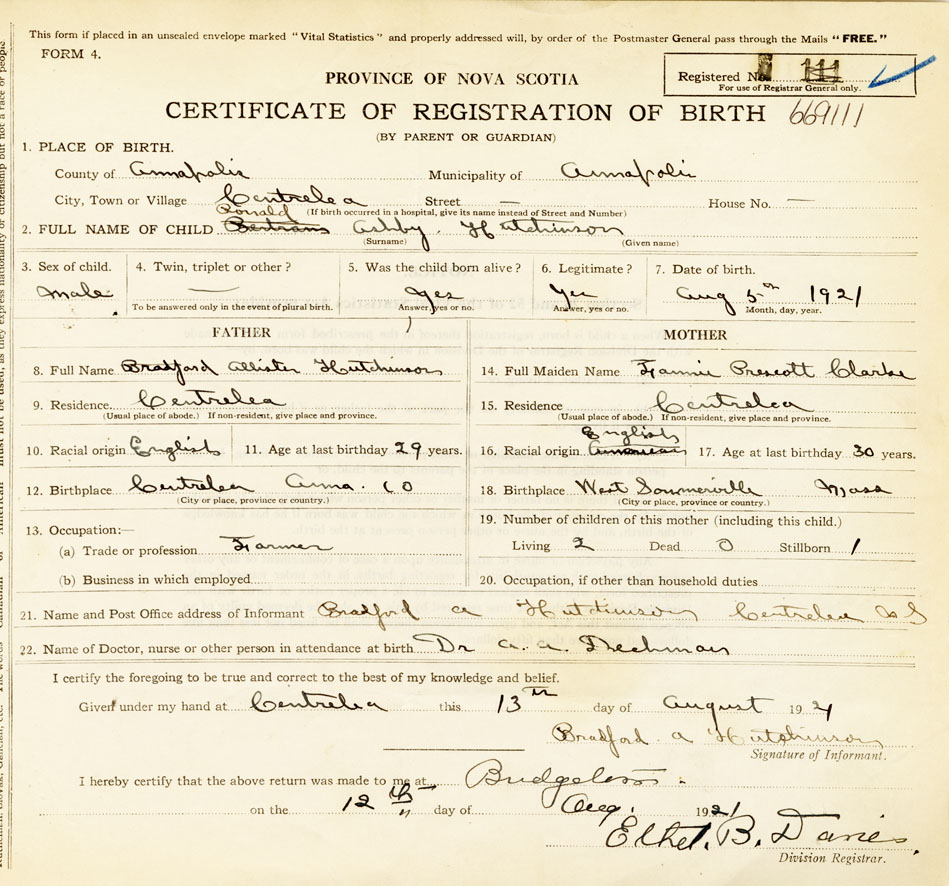 This form if placed in an unsealed envelope marked "Vital Statistics" and properly addressed will, by order of the Postmaster General pass through the Mails "FREE."
FORM 4.
Registered No. 111
PROVINCE OF NOVA SCOTIA
For use of Registrar General only.
CERTIFICATE OF REGISTRATION OF BIRTH 669111
(BY PARENT OR GUARDIAN)
1. PLACE OF BIRTH.
County of Annapolis Municipality of Annapolis
City, Town or Village Centrelea Street — House No. —
Ronald (If birth occurred in a hospital, give its name instead of Street and Number)
2. FULL NAME OF CHILD Bertram Ashby Hutchinson
(Surname) (Given name)
3. Sex of child. 4. Twin, triplet or other? 5. Was the child born alive? 6. Legitimate? 7. Date of birth.
Male — Yes Yes Aug 5th 1921
To be answered only in the event of plural birth. Answer, yes or no. Answer, yes or no. Month, day, year.
FATHER MOTHER
8. Full Name Bradford Allister Hutchinson 14. Full Maiden Name Fannie Prescott Clarke
9. Residence Centrelea 15. Residence Centrelea
(Usual place of abode.) If non-resident, give place and province. (Usual place of abode.) If non-resident, give place and province.
English
10. Racial origin English 11. Age at last birthday 29 years. 16. Racial origin American 17. Age at last birthday 30 years.
12. Birthplace Centrelea Anna. Co 18. Birthplace West Sommerville Mass
(City or place, province or country.) (City or place, province or country.)
13. Occupation:— 19. Number of children of this mother (including this child.)
(a) Trade or profession Farmer Living 2 Dead 0 Stillborn 1
(b) Business in which employed 20. Occupation, if other than household duties
21. Name and Post Office address of Informant Bradford A Hutchinson Centrelea N S
22. Name of Doctor, nurse or other person in attendance at birth Dr A. A. Dechman
I certify the foregoing to be true and correct to the best of my knowledge and belief.
Given under my hand at Centrelea this 13th day of August 1921
Bradford A Hutchinson
Signature of Informant.
I hereby certify that the above return was made to me at Bridgetown.
on the 12th day of Aug. 1921
Ethel. B. Davies.
Division Registrar.